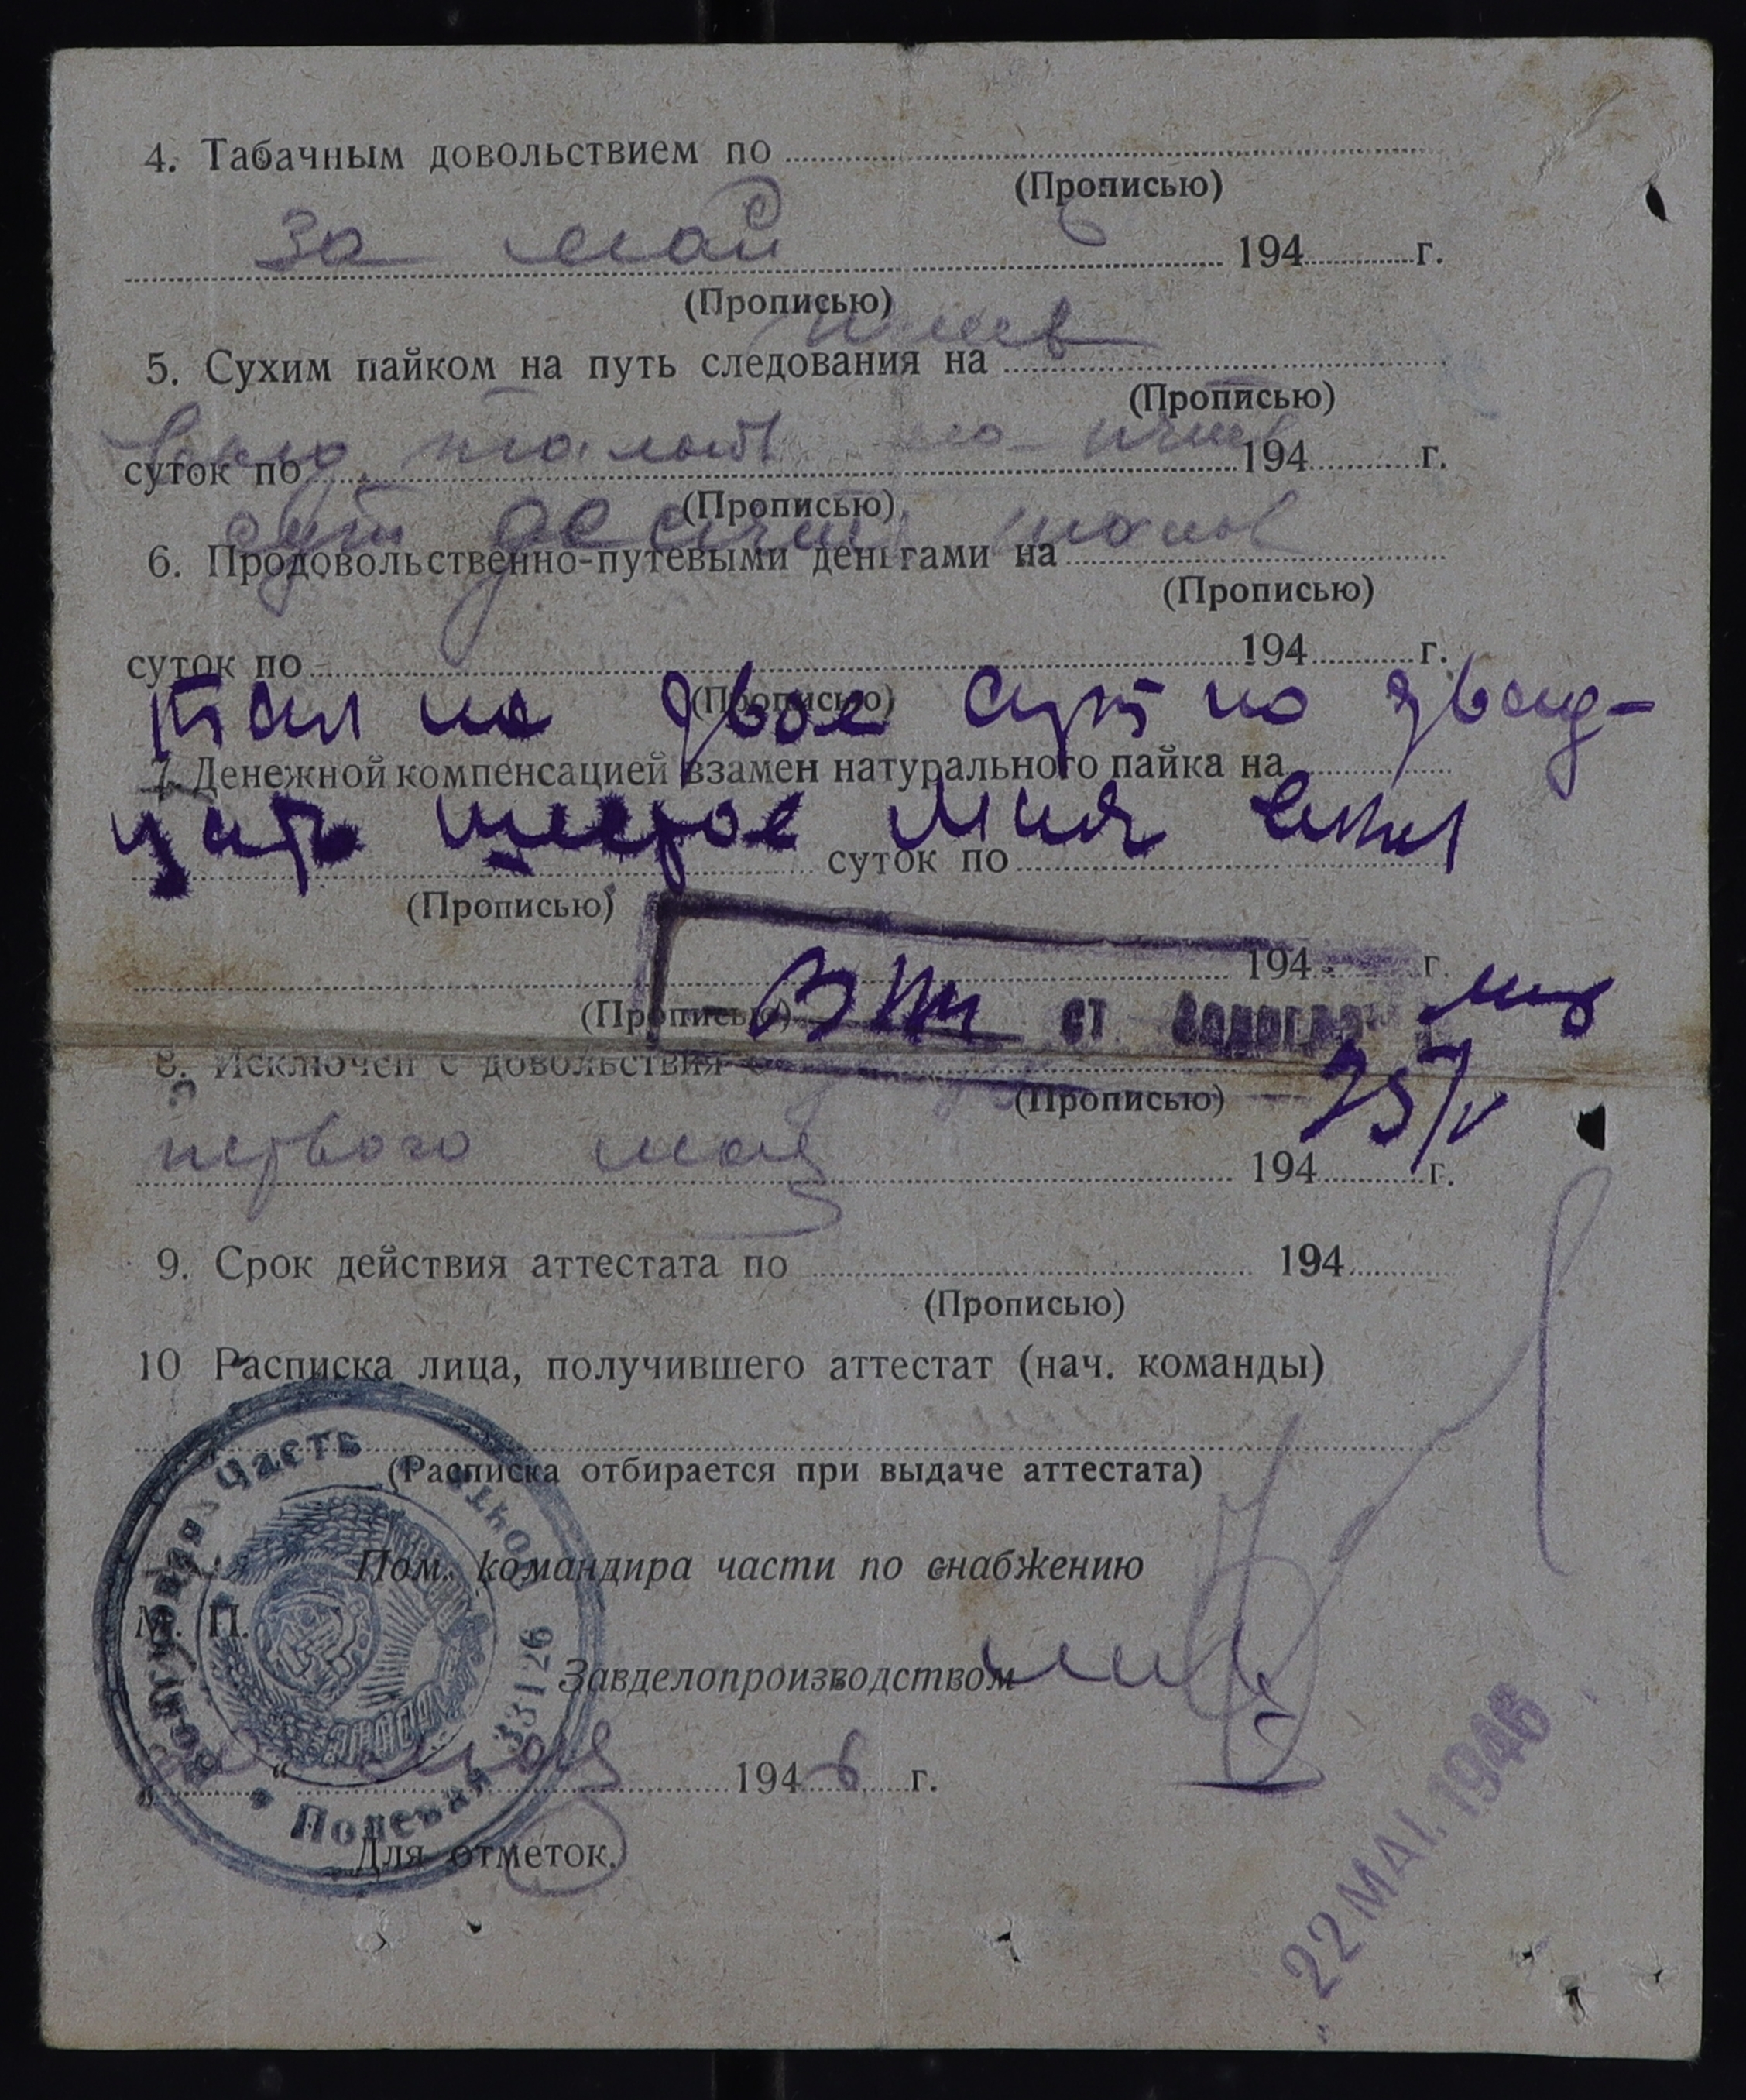 4. Табачным довольствием по
(Прописью)
за май 194 г.
(Прописью)
5. Сухим пайком на путь следования на
(Прописью)
суток по 194 г.
(Прописью)
6. Продовольственно-путевыми деньгами на
(Прописью)
суток по 194 г.
(Прописью)
на двое сут по двад-
7. Денежной компенсацией взамен натурального пайка на
цать шестое мая
суток по
(Прописью)
194 г.
(Прописью)
ст.
25/V
8. Исключен с довольствия с
(Прописью)
первого мая 194 г.
9. Срок действия аттестата по 194
(Прописью)
10 Расписка лица, получившего аттестат (нач. команды)
(Расписка отбирается при выдаче аттестата)
Войсковая Часть Полевая почта 33126
Пом. командира части по снабжению
М. П.
Завделопроизводством
„ “ мая 1946 г.
Для отметок.
22 MAI. 1946